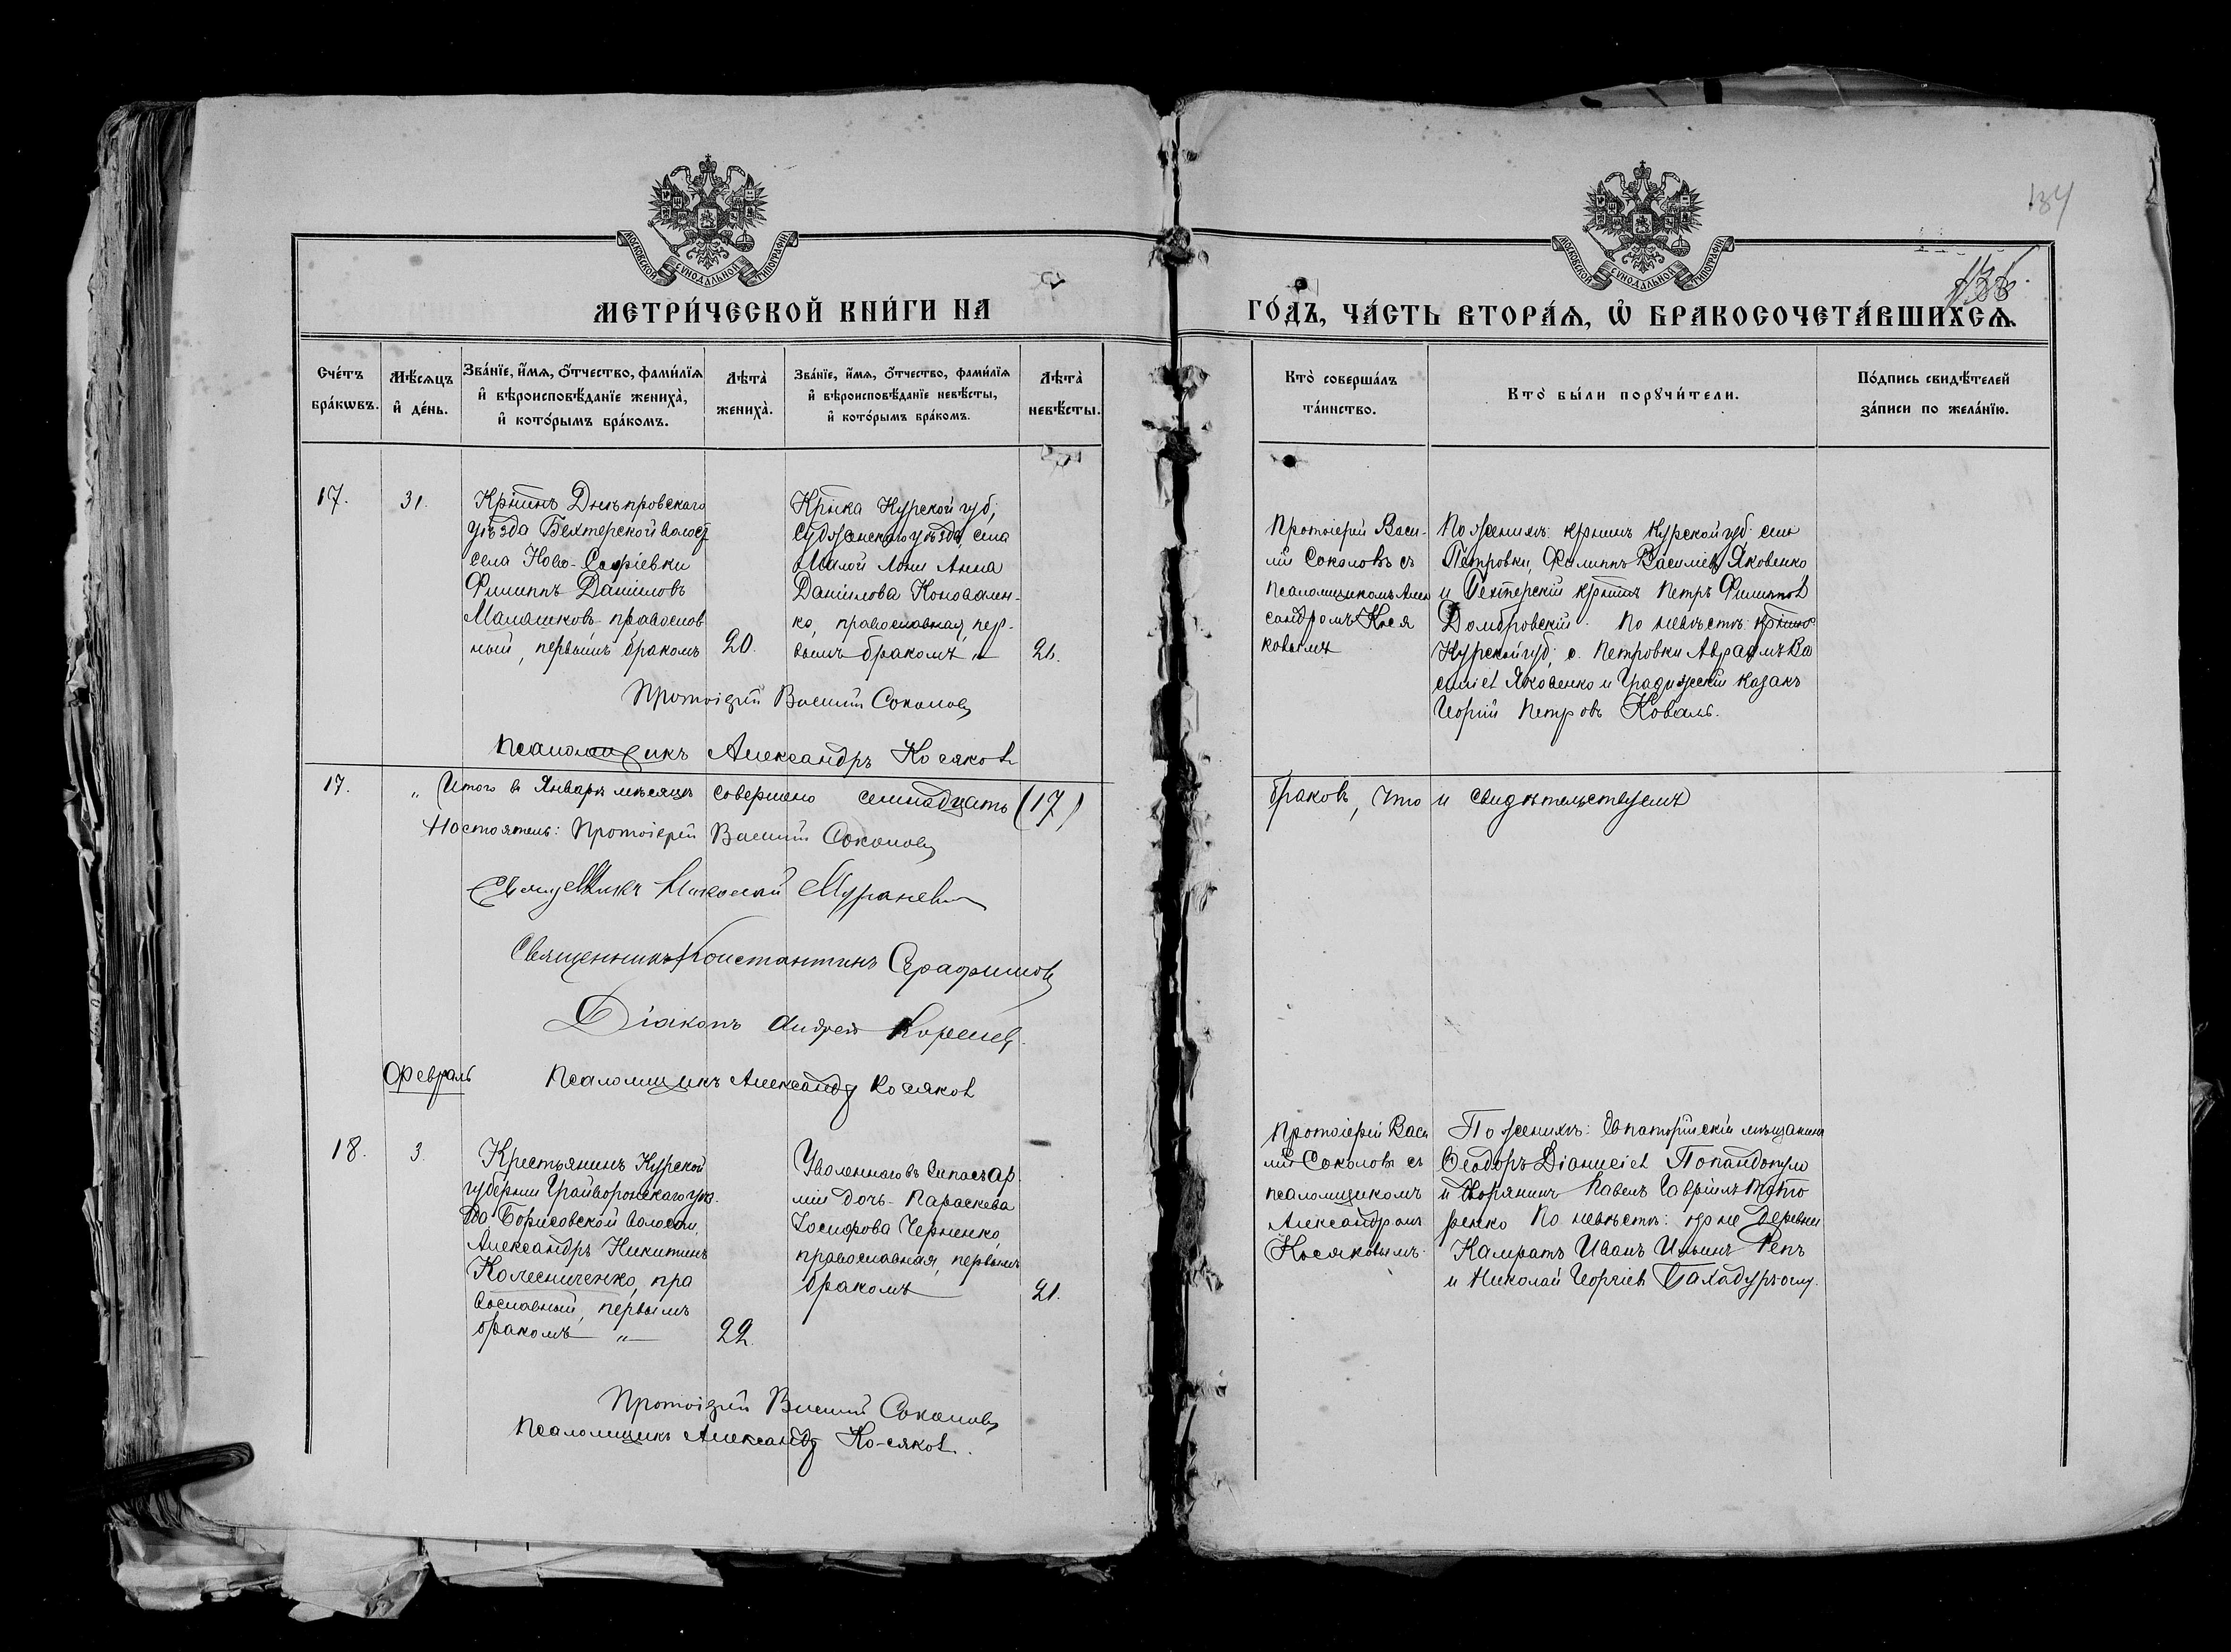 134
МОСКОВСКОЙ СѴНОДАЛЬНОЙ ТИПОГРАФІИ
МОСКОВСКОЙ СѴНОДАЛЬНОЙ ТИПОГРАФІИ
МЕТРИ́ЧЕСКОЙ КНИ́ГИ НА
ГО́ДЪ, ЧА́СТЬ ВТОРА́Ѧ, Ѽ БРАКОСОЧЕТА́ВШИХСѦ
Сче́тъ бра́кѡвъ.
Мѣ́сѧцъ и҆ де́нь.
Зва́нїе, и҆́мѧ, ѻ҆́тчество, фами́лїѧ
и҆ вѣроисповѣ́данїе жениха̀,
и҆ кото́рымъ бра́комъ.
Лѣта̀ жениха̀.
Зва́нїе, и҆́мѧ, ѻ҆́тчество, фами́лїѧ
и҆ вѣроисповѣ́данїе невѣ́сты,
и҆ кото́рымъ бра́комъ.
Лѣта̀ невѣ́сты.
Кто̀ соверша́лъ
та́инство.
Кто̀ бы́ли порꙋчи́тели.
По́дпись свидѣ́телей
за́писи по жела́нїю.
17.
31.
Кр҃инъ Днѣпровскаго
уѣзда Бехтерской волост
села Ново-Софіевки
Филиппъ Даніиловъ
Малашковъ православ
ный, первымъ бракомъ
20.
Кр҃нка Курской губ;
Суджанскаго уѣзда, села
Малой Локни Анна
Даніилова Коновален-
ко, православная, пер-
вымъ бракомъ "
21.
Протоіерей Васи-
лій Соколовъ съ
псаломщикомъ Алек
сандромъ Кося
ковымъ
По женихѣ: кр҃нинъ Курской губ: села
Петровки, Филиппъ Василіевъ Яковенко
и Бехтерскій кр҃нинъ Петръ Филиппов
Домбровскій. По невѣстѣ: кр҃нинъ
Курской губ; с. Петровки Авраамъ Ва
силіев Яковенко и Градижскій казакъ
Георгій Петровъ Коваль.
Протоіерей Василій Соколовъ
Псаломщикъ Александръ Косяков
17.
" Итого в Январѣ мѣсяцѣ совершено семнадцать (17)
браковъ, что и свидѣтельствуемъ
Настоятель: Протоіерей Василій Соколовъ
Священникъ Николай
Священникъ Константинъ Серафимовъ
Діаконъ Андрей
Псаломщикъ Александр Косяков
Февраль
18.
3.
Крестьянинъ Курской
губерніи Грайворонскаго уѣз-
да, Борисовской волости,
Александръ Никитинъ
Колесниченко, пра
вославный, первымъ
бракомъ "
22.
Уволеннаго въ запасъ ар
міи дочь - Параскева
Іосифова Черненко,
православная, первымъ
бракомъ
21.
Протоіерей Васи
лій Соколовъ съ
псаломщикомъ
Александромъ
Косяковымъ.
По женихѣ: Евпаторійскій мѣщанинъ
Ѳеодоръ Діонисіев Попандопуло
и дворянинъ Павелъ Гавріилъ
ренко По невѣстѣ: кр҃не деревни
Камратъ Иванъ Ильинъ Репъ
и Николай Георгіев
Протоіерей Василій Соколовъ
Псаломщикъ Александр Косяков.